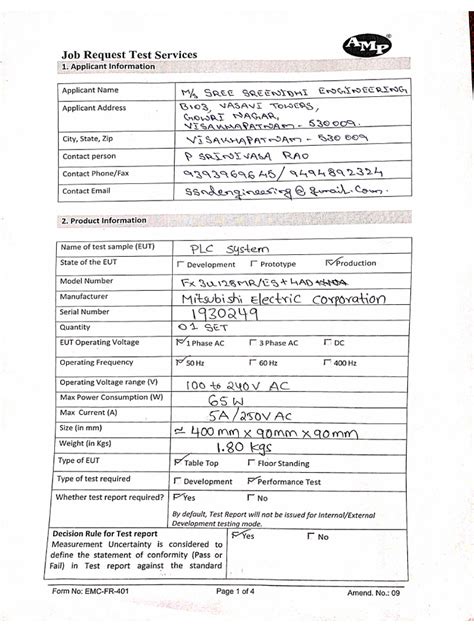 AMP ®
Job Request Test Services
1. Applicant Information
Applicant Name M/s SREE SREENIDHI ENGINEERING
Applicant Address B103, VASAVI TOWERS,
GOWRI NAGAR,
VISAKHAPATNAM - 530009.
City, State, Zip VISAKHAPATNAM - 530009
Contact person P SRINIVASA RAO
Contact Phone/Fax 9393969645 / 9494892324
Contact Email @gmail.com.
2. Product Information
Name of test sample (EUT) PLC System
State of the EUT Development Prototype Production
Model Number FX3U128MR/ES+4AD
Manufacturer Mitsubishi Electric Corporation
Serial Number 1930249
Quantity 01 SET
EUT Operating Voltage 1 Phase AC 3 Phase AC DC
Operating Frequency 50 Hz 60 Hz 400 Hz
Operating Voltage range (V) 100 to 240V AC
Max Power Consumption (W) 65W
Max Current (A) 5A/250V AC
Size (in mm) ≈ 400mm x 90mm x 90mm
Weight (in Kgs) 1.80 kgs
Type of EUT Table Top Floor Standing
Type of test required Development Performance Test
Whether test report required? Yes No
By default, Test Report will not be issued for Internal/External
Development testing mode.
Decision Rule for Test report Yes No
Measurement Uncertainty is considered to
define the statement of conformity (Pass or
Fail) in Test report against the standard
Form No: EMC-FR-401 Page 1 of 4 Amend. No.: 09